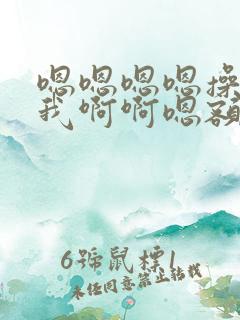 嗯嗯嗯嗯操
我啊啊嗯额
6号鼠标1
未经同意禁止转载